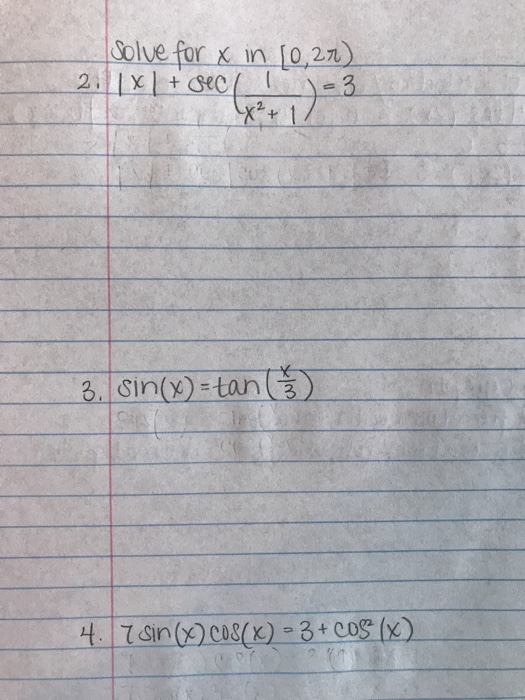 Solve for x in [0,2π)
2. |x| + sec(1/(x²+1)) = 3
3. sin(x) = tan(x/3)
4. 7 sin(x) cos(x) = 3 + cos²(x)